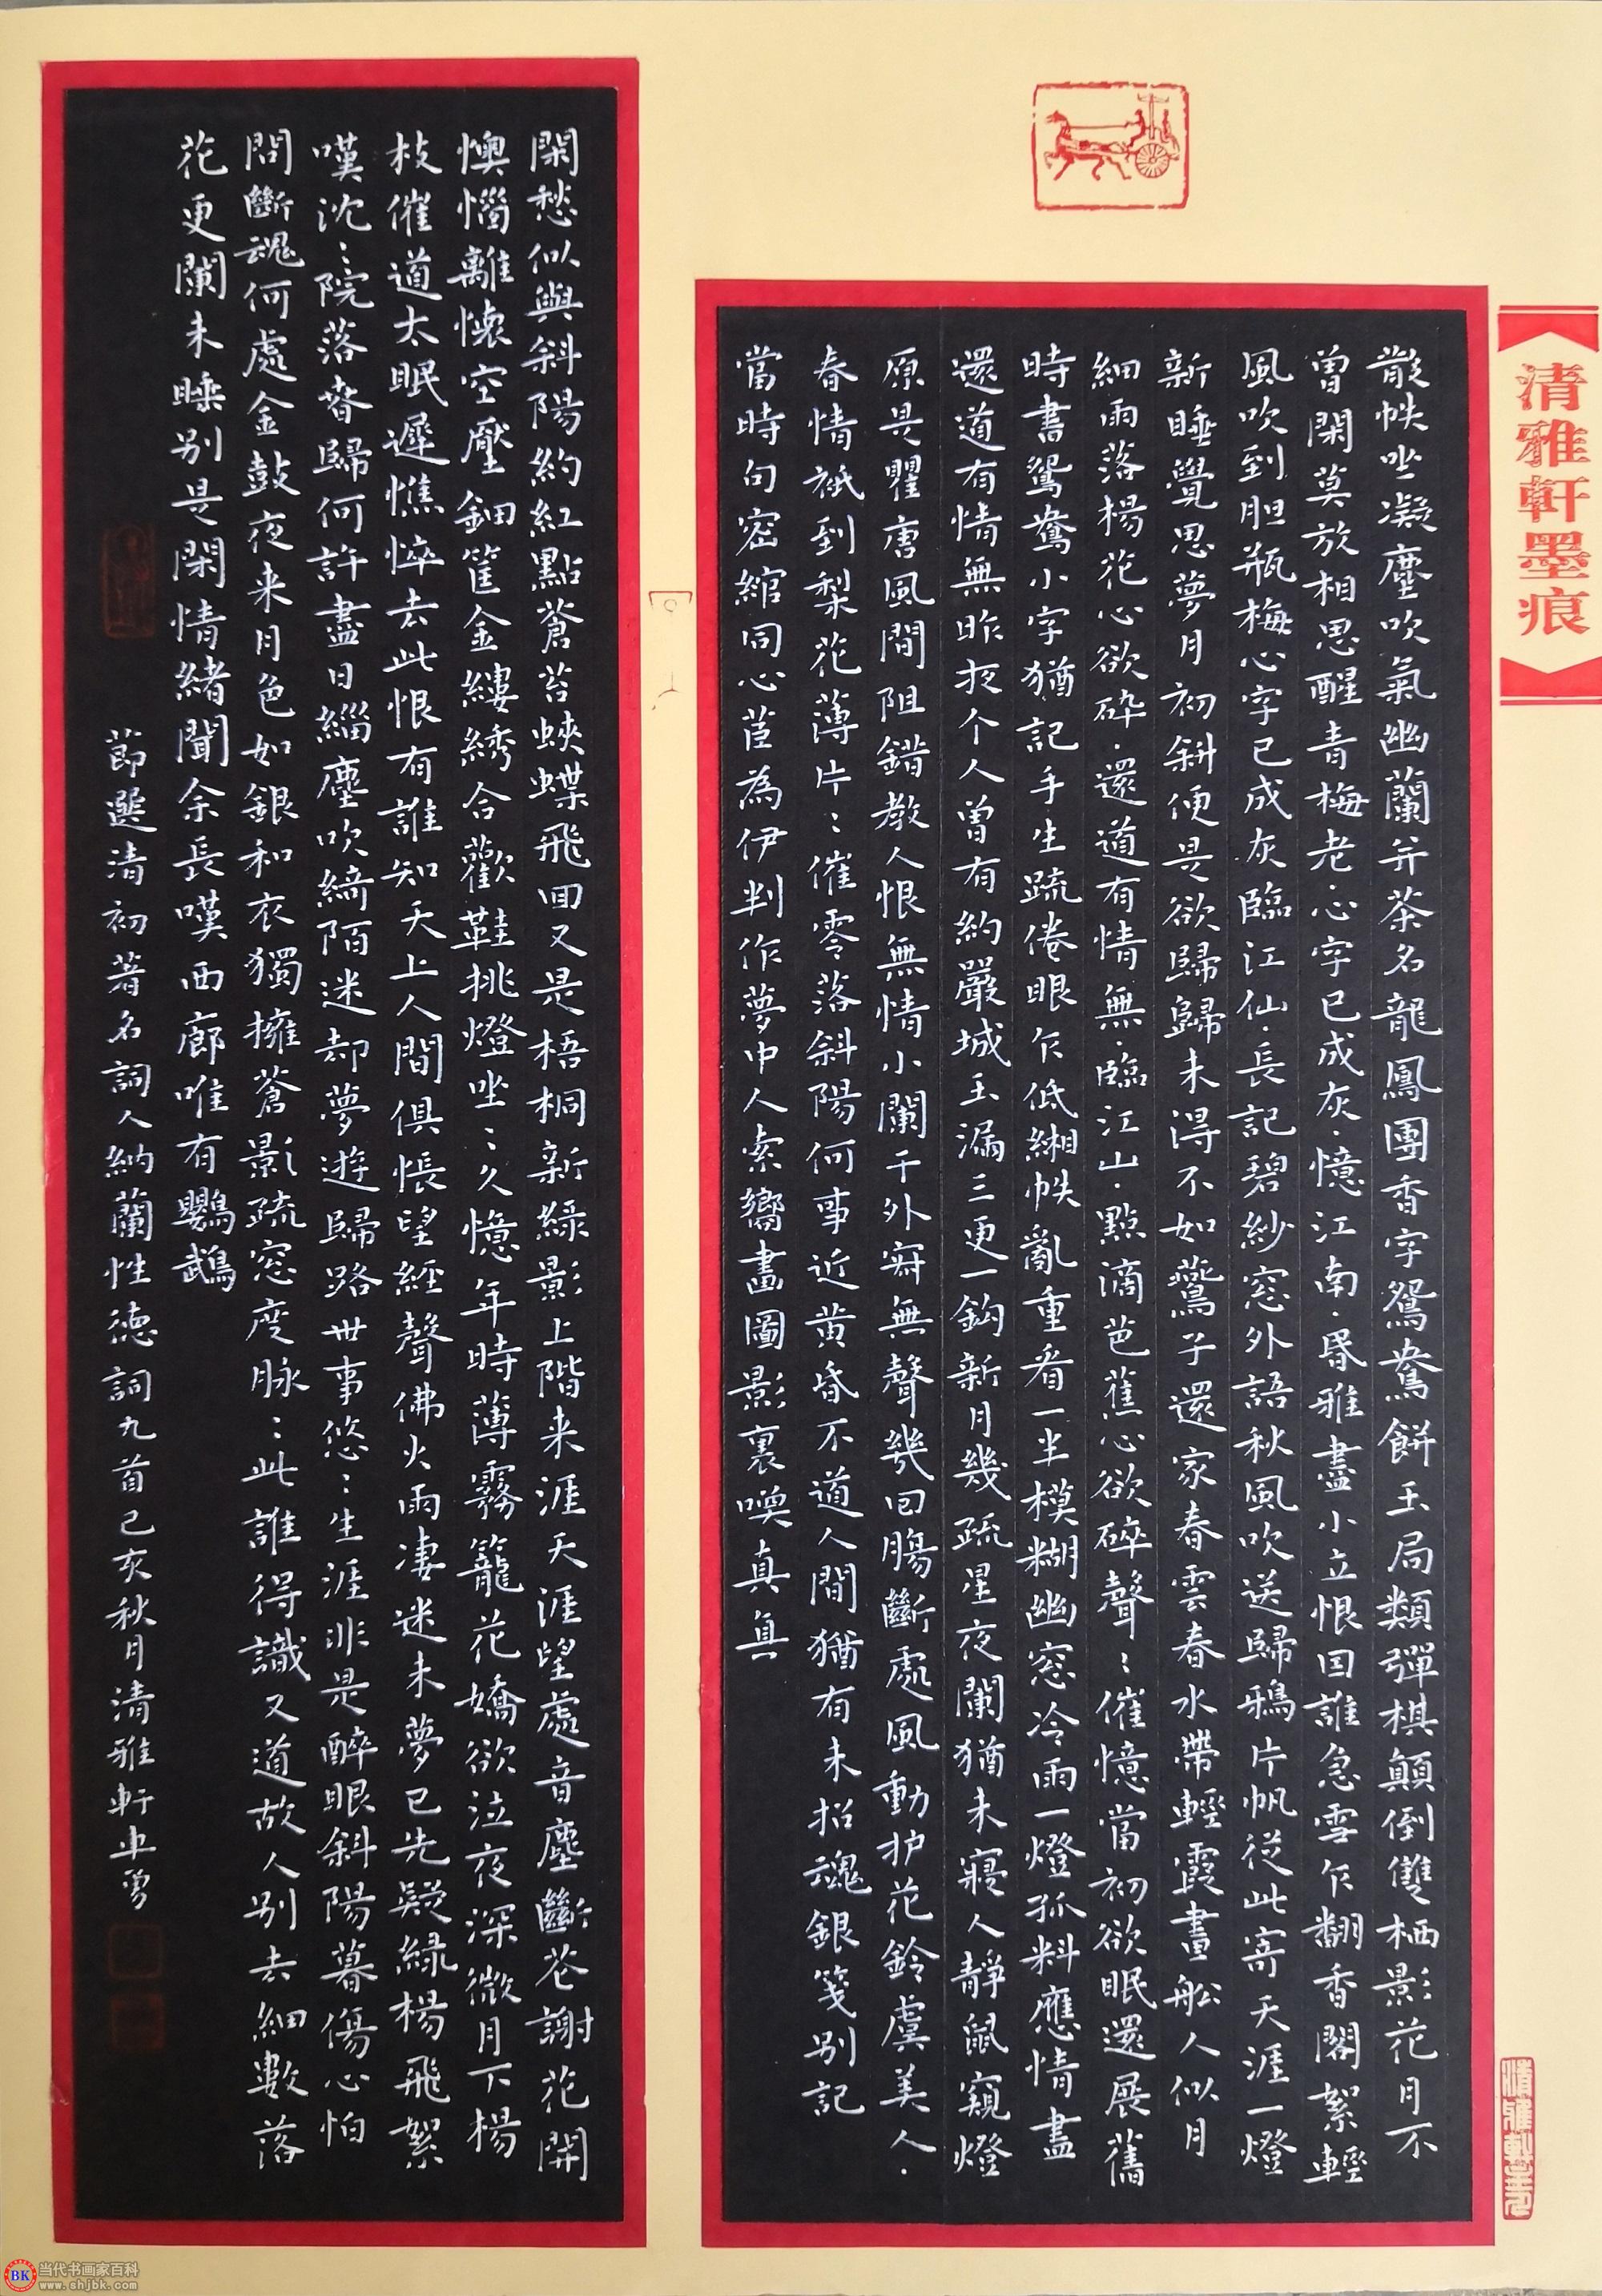 清雅軒墨痕
散帙坐凝塵吹氣幽蘭并茶名龍鳳團香字鴛鴦餅玉局類彈棋顛倒雙栖影花月不
曾閑莫放相思醒青梅老·心字已成灰·憶江南·昏雅盡小立恨回誰急雪乍翻香閣絮輕
風吹到胆瓶梅心字已成灰臨江仙·長記碧紗窓外語秋風吹送歸鴉片帆從此寄天涯一燈
新睡覺思夢月初斜便是欲歸歸未得不如鷰子還家春雲春水帶輕霞畫船人似月
細雨落楊花心欲碎·還道有情無·臨江山·點滴芭蕉心欲碎聲:催憶當初欲眠還展舊
時書鴛鴦小字猶記手生疏倦眼乍低緗帙亂重看一半模糊幽窓冷雨一燈孤料應情盡
還道有情無昨夜个人曾有約嚴城玉漏三更一鈎新月幾疏星夜闌猶未寢人靜鼠窺燈
原是瞿唐風間阻錯教人恨無情小闌干外寂無聲幾回腸斷處風動护花鈴虞美人·
春情祇到梨花薄片:催零落斜陽何事近黄昏不道人間猶有未招魂銀箋别記
當時句密綰同心苣為伊判作夢中人索嚮畵圖影裏喚真真
閑愁似與斜陽約紅點蒼苔蛺蝶飛回又是梧桐新緑影上階来涯天涯望處音塵斷花謝花開
懊惱離懷空壓鈿筐金縷綉合歡鞋挑燈坐:久憶年時薄霧籠花嬌欲泣夜深微月下楊
枝催道太眠遲憔悴去此恨有誰知天上人間俱悵望經聲佛火兩凄迷未夢已先疑緑楊飛絮
嘆沈:院落春歸何許盡日緇塵吹綺陌迷却夢遊歸路世事悠:生涯非是醉眼斜陽暮傷心怕
問斷魂何處金鼓夜来月色如銀和衣獨擁蒼影疏窓度脉:此誰得識又道故人别去細數落
花更闌未睡别是閑情緒聞余長嘆西廊唯有鸚鵡
節選清初著名詞人納蘭性德詞九首己亥秋月清雅軒
清雅軒
当代书画家百科
www.shjbk.com
BK